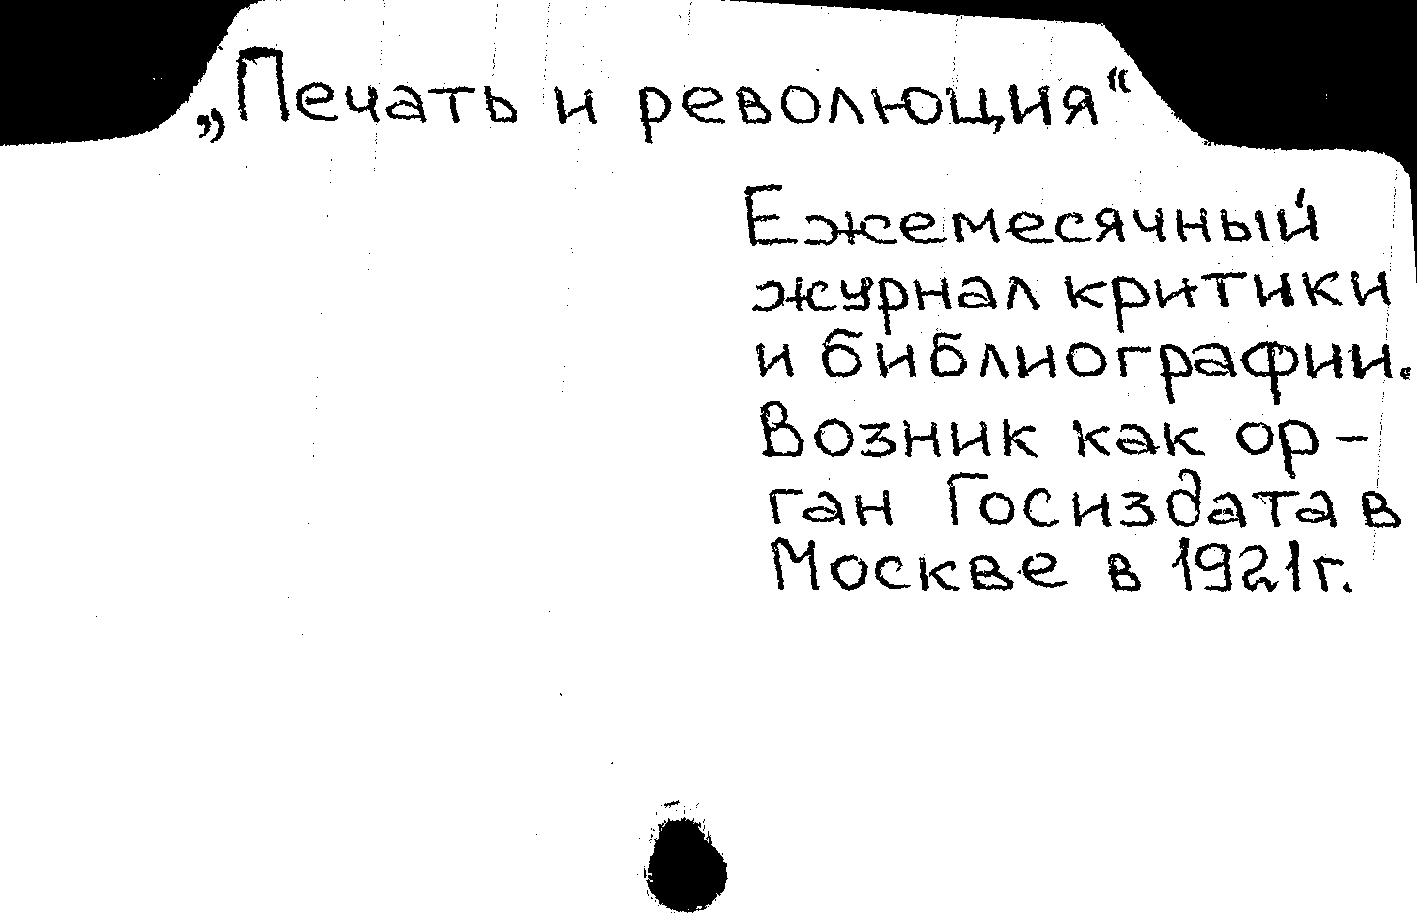 „Печать и революция“
Ежемесячный
журнал критики
и библиографии.
Возник как ор-
ган Госиздата в
Москве в 1921г.